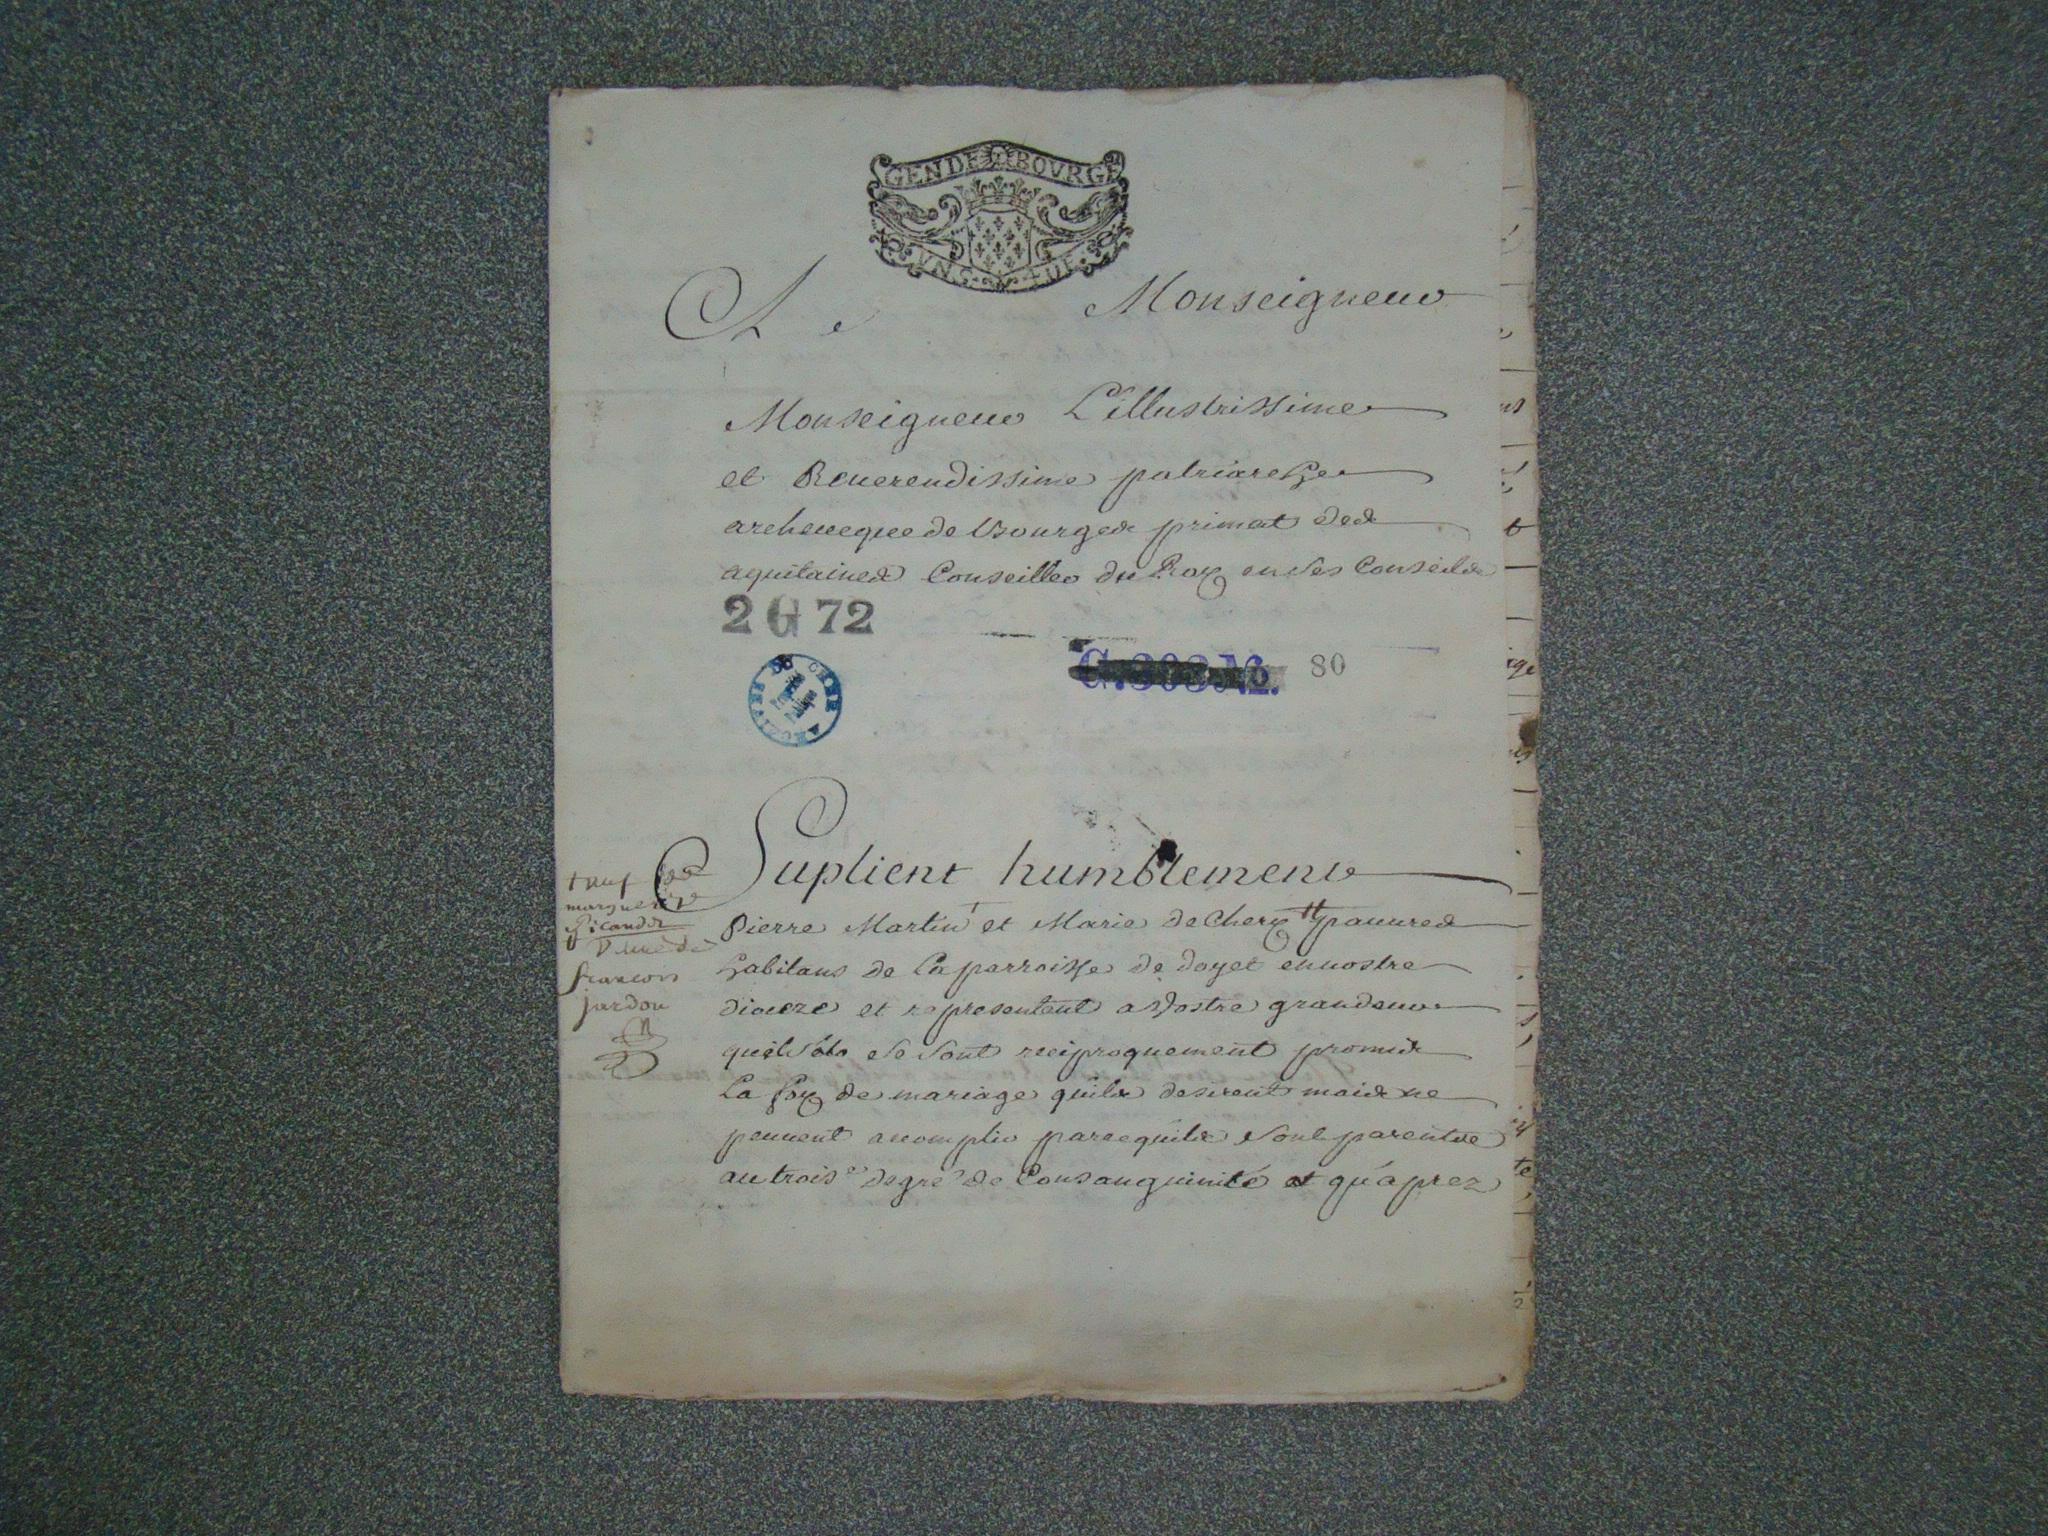 GEN DE BOVRGE
VN S. DE
A Monseigneur
Monseigneur L'illustrissime
et Reuerendissime patriarche
archeueque de Bourges primat des
aquitaines Conseiller du Roy en ses Conseils
2 G 72
G. 303 No. 80
ARCHIVES DU CHER
Propriété
Publique
Suplient humblement
Pierre Martin + et Marie de Chery # pauures
habitans de la parroisse de doyet en vostre
dioceze et representent a Vostre grandeur
quils se sont reciproquement promis
La foy de mariage quils desirent mais ne
peuuent acomplir parcequils sont parents
au trois.e degré de Consanguinité et qu'aprez
+ ueuf de
marguerite
Picandet
# veuue de
francois
jardon